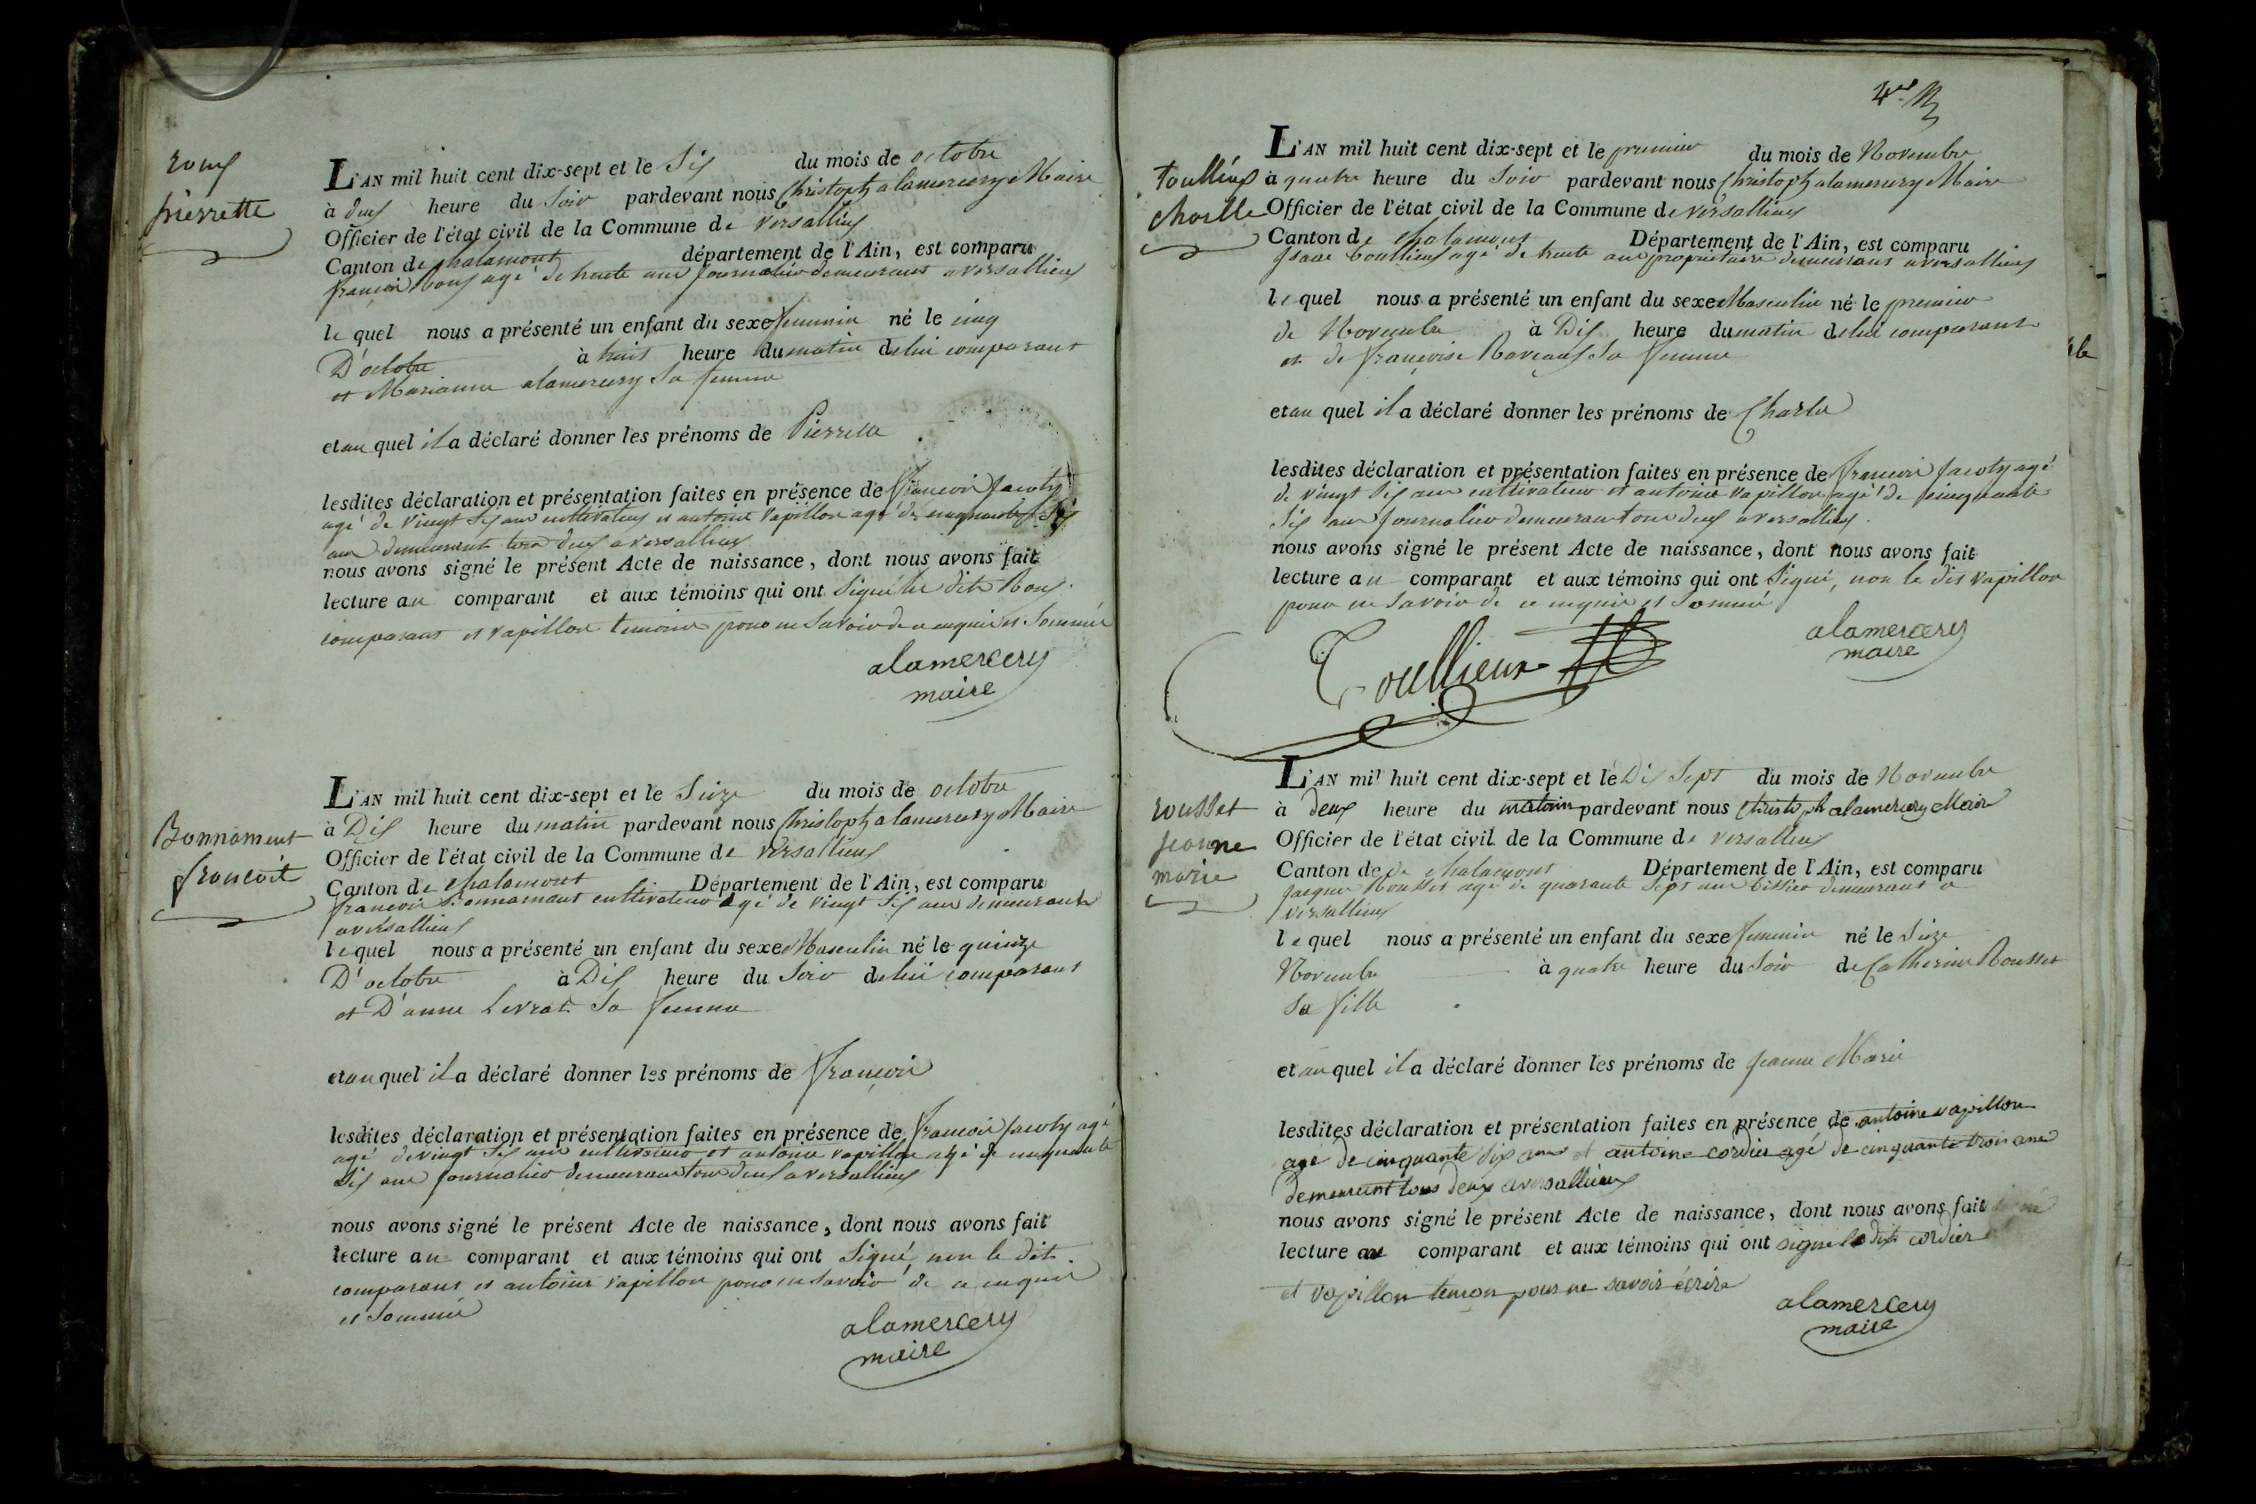 roux
pierrette
L'AN mil huit cent dix-sept et le Six du mois de octobre
à deux heure du Soir pardevant nous Christoph alamercery Maire
Officier de l'état civil de la Commune de versallieux
Canton de chalamont département de l'Ain, est comparu
françois Roux agé de trente ans Journalier demeurant a versallieux
le quel nous a présenté un enfant du sexe feminin né le cinq
D'octobre à huit heure du matin de lui comparant
et Marianne alamercery Sa femme
et au quel il a déclaré donner les prénoms de Pierrette
lesdites déclaration et présentation faites en présence de francois Jacoty
agé de vingt Six ans cultivateur et antoine vapillon agé de cinquante Six
ans demeurant tous deux a versallieux
nous avons signé le présent Acte de naissance, dont nous avons fait
lecture au comparant et aux témoins qui ont Signé les dits Roux
comparant et vapillon temoins pour ne Savoir de ce enquis et Sommé
alamercery
maire
Bonnament
francoit
L'AN mil huit cent dix-sept et le Seize du mois de octobre
à Dix heure du matin pardevant nous Christoph alamercery Maire
Officier de l'état civil de la Commune de versallieux
Canton de chalamont Département de l'Ain, est comparu
francois Bonnamant cultivateur agé de vingt Six ans demeurant
a versallieux
le quel nous a présenté un enfant du sexe Masculin né le quinze
D'octobre à Dix heure du Soir de lui comparant
et D'anne Levrat Sa femme
et au quel il a déclaré donner les prénoms de françois
lesdites déclaration et présentation faites en présence de francois Jacoty agé
agé de vingt Six ans cultivateur et antoine vapillon agé de cinquante
Six ans Journalier demeurant tous deux a versallieux
nous avons signé le présent Acte de naissance, dont nous avons fait
lecture au comparant et aux témoins qui ont Signé, non le dit
comparant et antoine vapillon pour ne savoir de ce enquis
et Sommé
alamercery
maire
4me
Toullieux
charlle
L'AN mil huit cent dix-sept et le premier du mois de Novembre
à quatre heure du Soir pardevant nous Christoph alamercery Maire
Officier de l'état civil de la Commune de versallieux
Canton de chalamont Département de l'Ain, est comparu
Isaac toullieux agé de trente ans proprietaire demeurant a versallieux
le quel nous a présenté un enfant du sexe Masculin né le premier
de Novembre à Dix heure du matin de lui comparant
et de françoise Raveaux Sa femme
et au quel il a déclaré donner les prénoms de Charle
lesdites déclaration et présentation faites en présence de francois Jacoty agé
de vingt Six ans cultivateur et antoine vapillon agé de cinquante
Six ans Journalier demeurant tous deux a versallieux.
nous avons signé le présent Acte de naissance, dont nous avons fait
lecture au comparant et aux témoins qui ont Signé, non le dit vapillon
pour ne Savoir de ce enquis et Sommé
alamercery
maire
Toullieux
rousset
jeanne
marie
L'AN mil huit cent dix-sept et le Dix Sept du mois de Novembre
à deux heure du matain pardevant nous Christoph alamercery Maire
Officier de l'état civil de la Commune de versallieux
Canton de de chalamont Département de l'Ain, est comparu
Jacque Rousset agé de quarante Sept ans tissier demeurant a
versallieux
le quel nous a présenté un enfant du sexe feminin né le Seize
Novembre à quatre heure du Soir de Catherine Rousset
Sa fille
et au quel il a déclaré donner les prénoms de Jeanne Marie
lesdites déclaration et présentation faites en présence de antoine vapillon
age de cinquante six ans et antoine cordier agé de cinquante trois ans
demeurant tous deux a versallieux
nous avons signé le présent Acte de naissance, dont nous avons fait
lecture au comparant et aux témoins qui ont signe le dit cordier
et vapillon temon pour ne savoir écrire
alamercery
maire